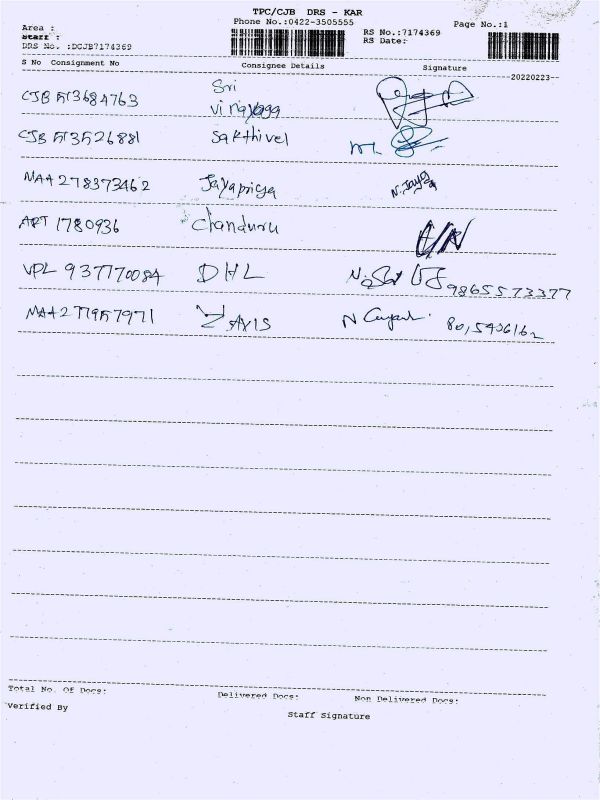 TPC/CJB DRS - KAR
Phone No.:0422-3505555
Page No.:1
Area :
Staff :
DRS No. :DCJB7174369
RS No.:7174369
RS Date:
S No Consignment No Consignee Details Signature
20220223
CJB 513684763 Sri vinayaga
CJB 513526881 Sakthivel
MAA 278373462 Jayapriya N. Jaya
ART 1780936 Chanduru
VPL 937770084 DHL 9865573377
MAA 277957971 Z AXIS N
Total No. Of Docs: Delivered Docs: Non Delivered Docs:
Verified By
Staff Signature